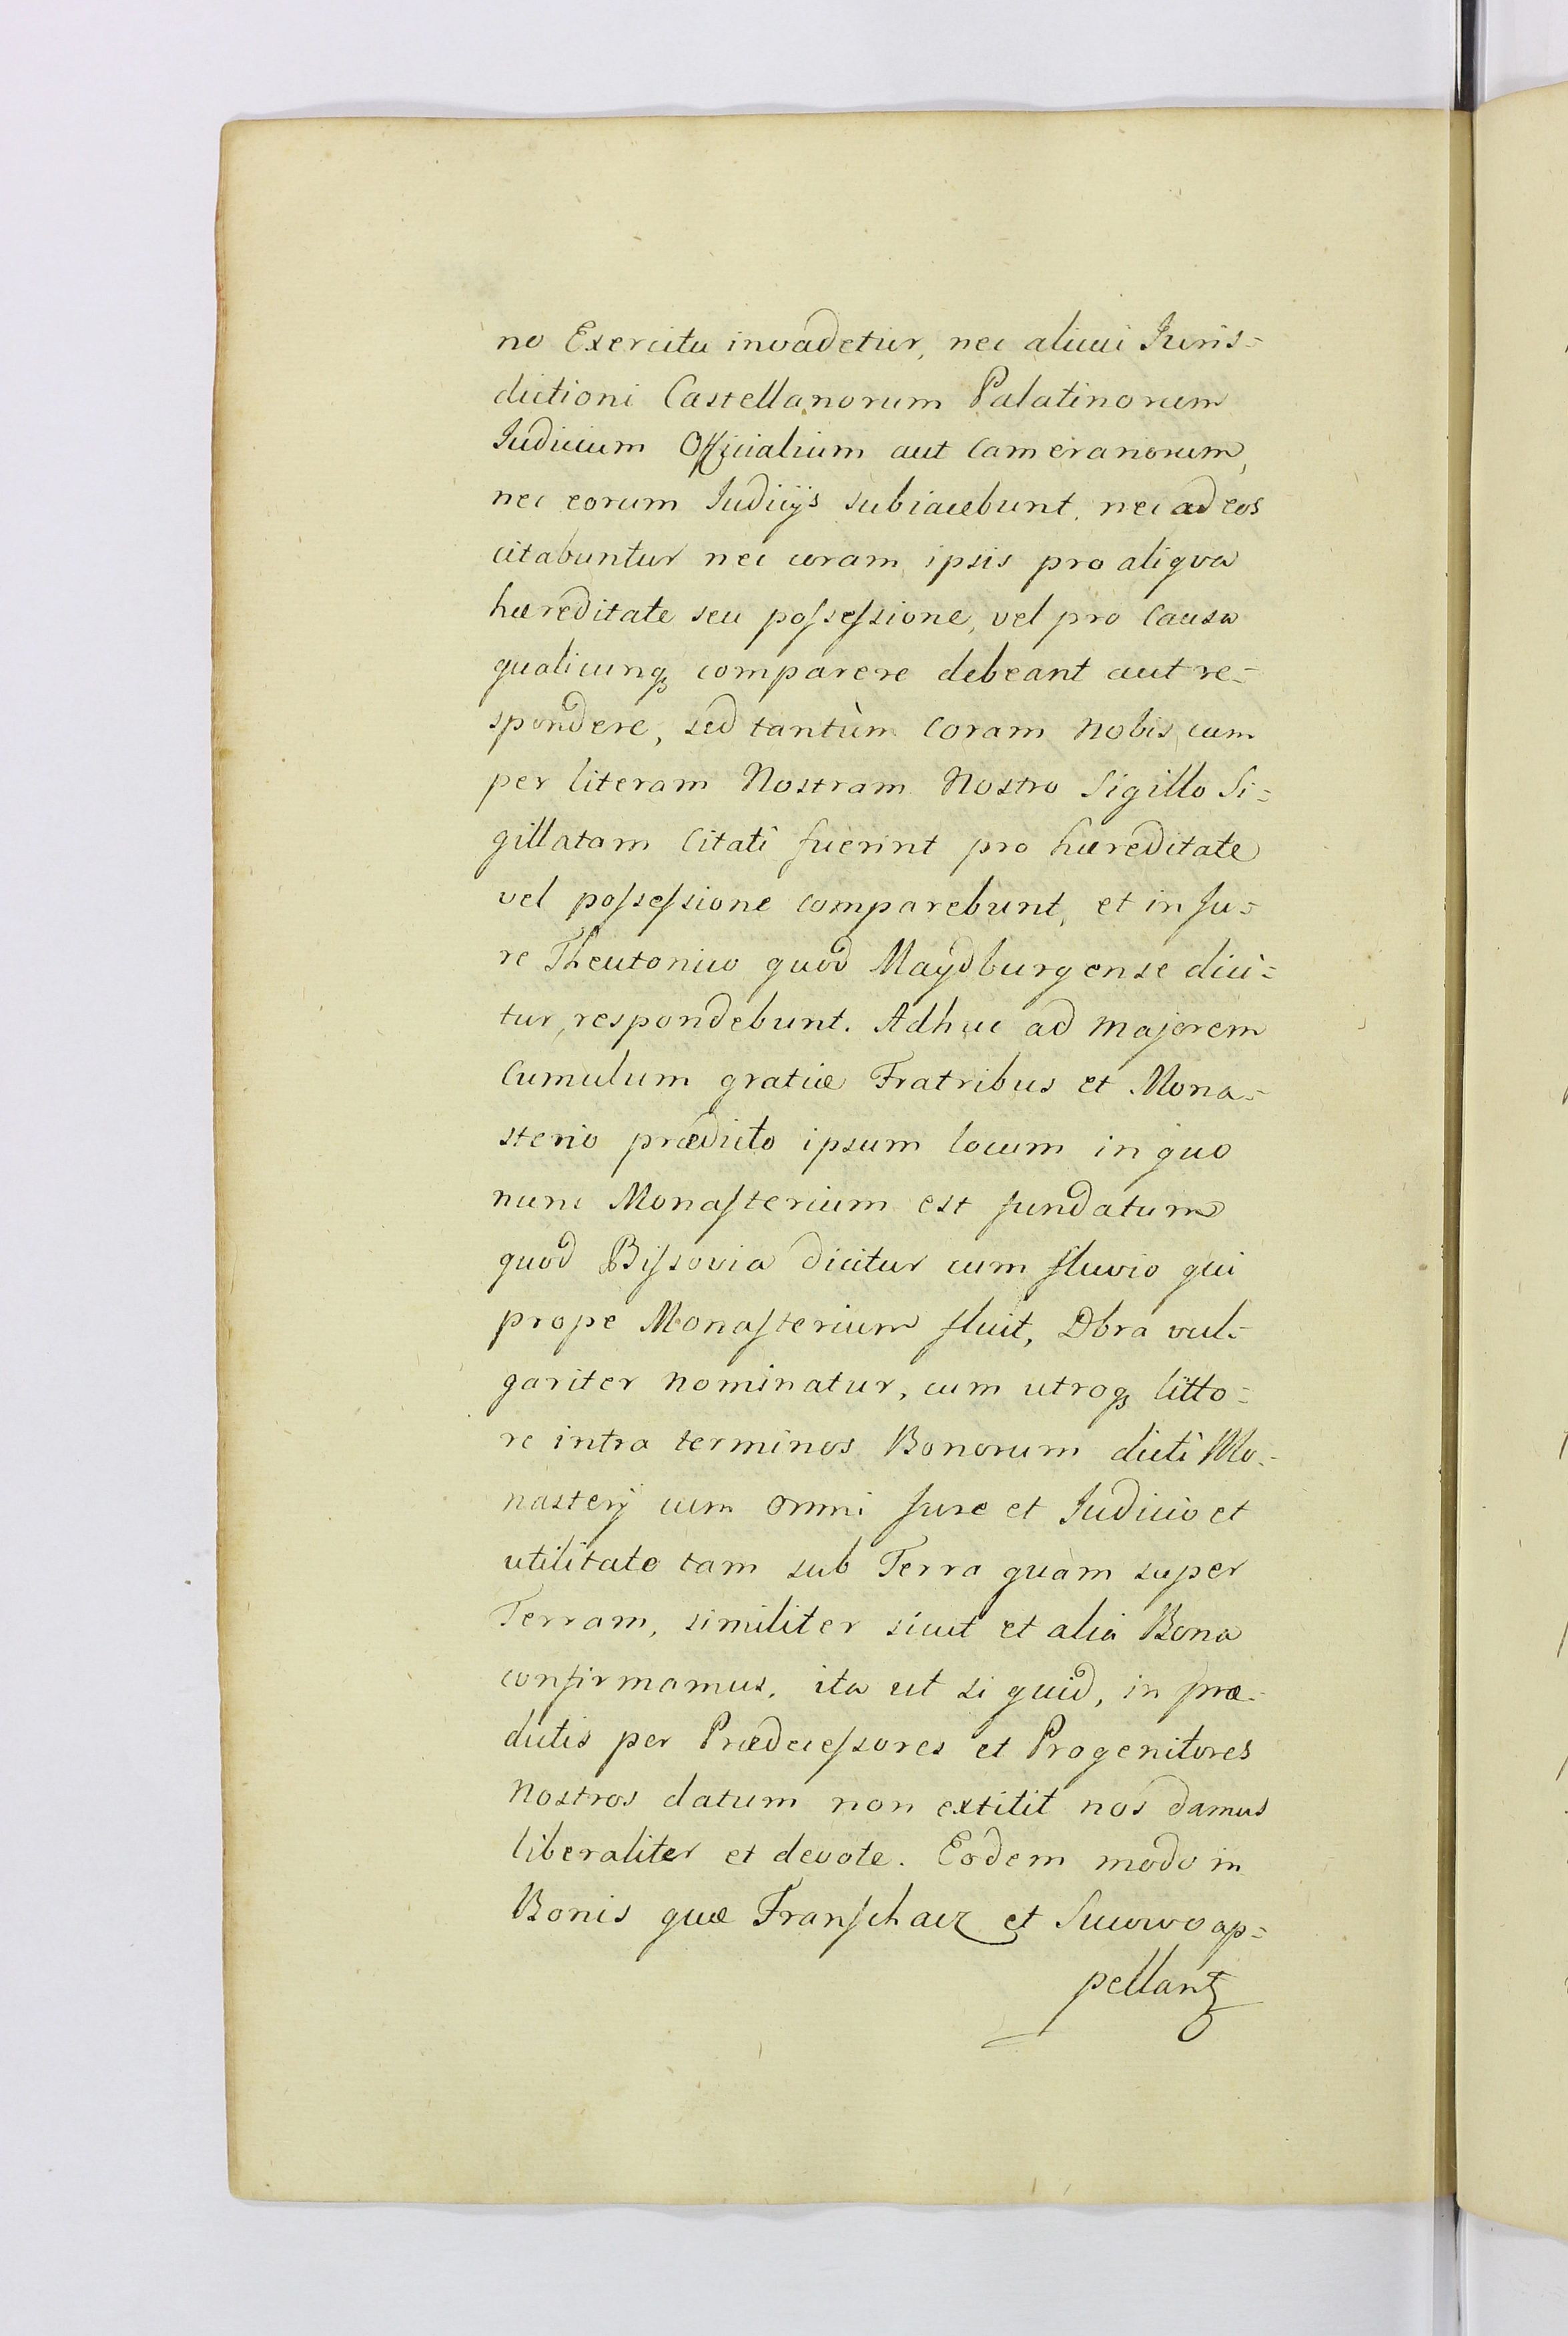 no Exercitu invadetur, nec alicui Juris=
dictioni Castellanorum Palatinorum
Judicum Officialium aut Camerariorum,
nec eorum Judicijs subiacebunt, nec ad eos
citabuntur nec coram ipsis pro aliqva
hæreditate seu poſseſsione, vel pro Causa
qualicunqꝫ comparere debeant aut re=
spondere, sed tantùm Coram Nobis, cum
per literam Nostram Nostro Sigillo Si=
gillatam Citati fuerint pro hæreditate
vel poſseſsione comparebunt, et in Ju=
re Theutonico quod Maydburgense dici=
tur, respondebunt. Adhuc ad Majorem
Cumulum gratiæ Fratribus et Mona=
sterio prædicto ipsum locum in quo
nunc Monaſterium est fundatum
quod Biſsovia dicitur cum fluvio qui
prope Monaſterium fluit, Dbra vul=
gariter Nominatur, cum utroqꝫ litto=
re intra terminos Bonorum dicti Mo=
nasterij cum Omni Jure et Judicio et
utilitate tam sub Terra quàm super
Terram, similiter sicut et alia Bona
confirmamus, ita ut si quid, in præ=
dictis per Prædeceſsores et Progenitores
Nostros datum non extitit nos damus
liberaliter et devote. Eodem modo in
Bonis quæ Franſchacz et Sucowo ap=
pellantꝫ